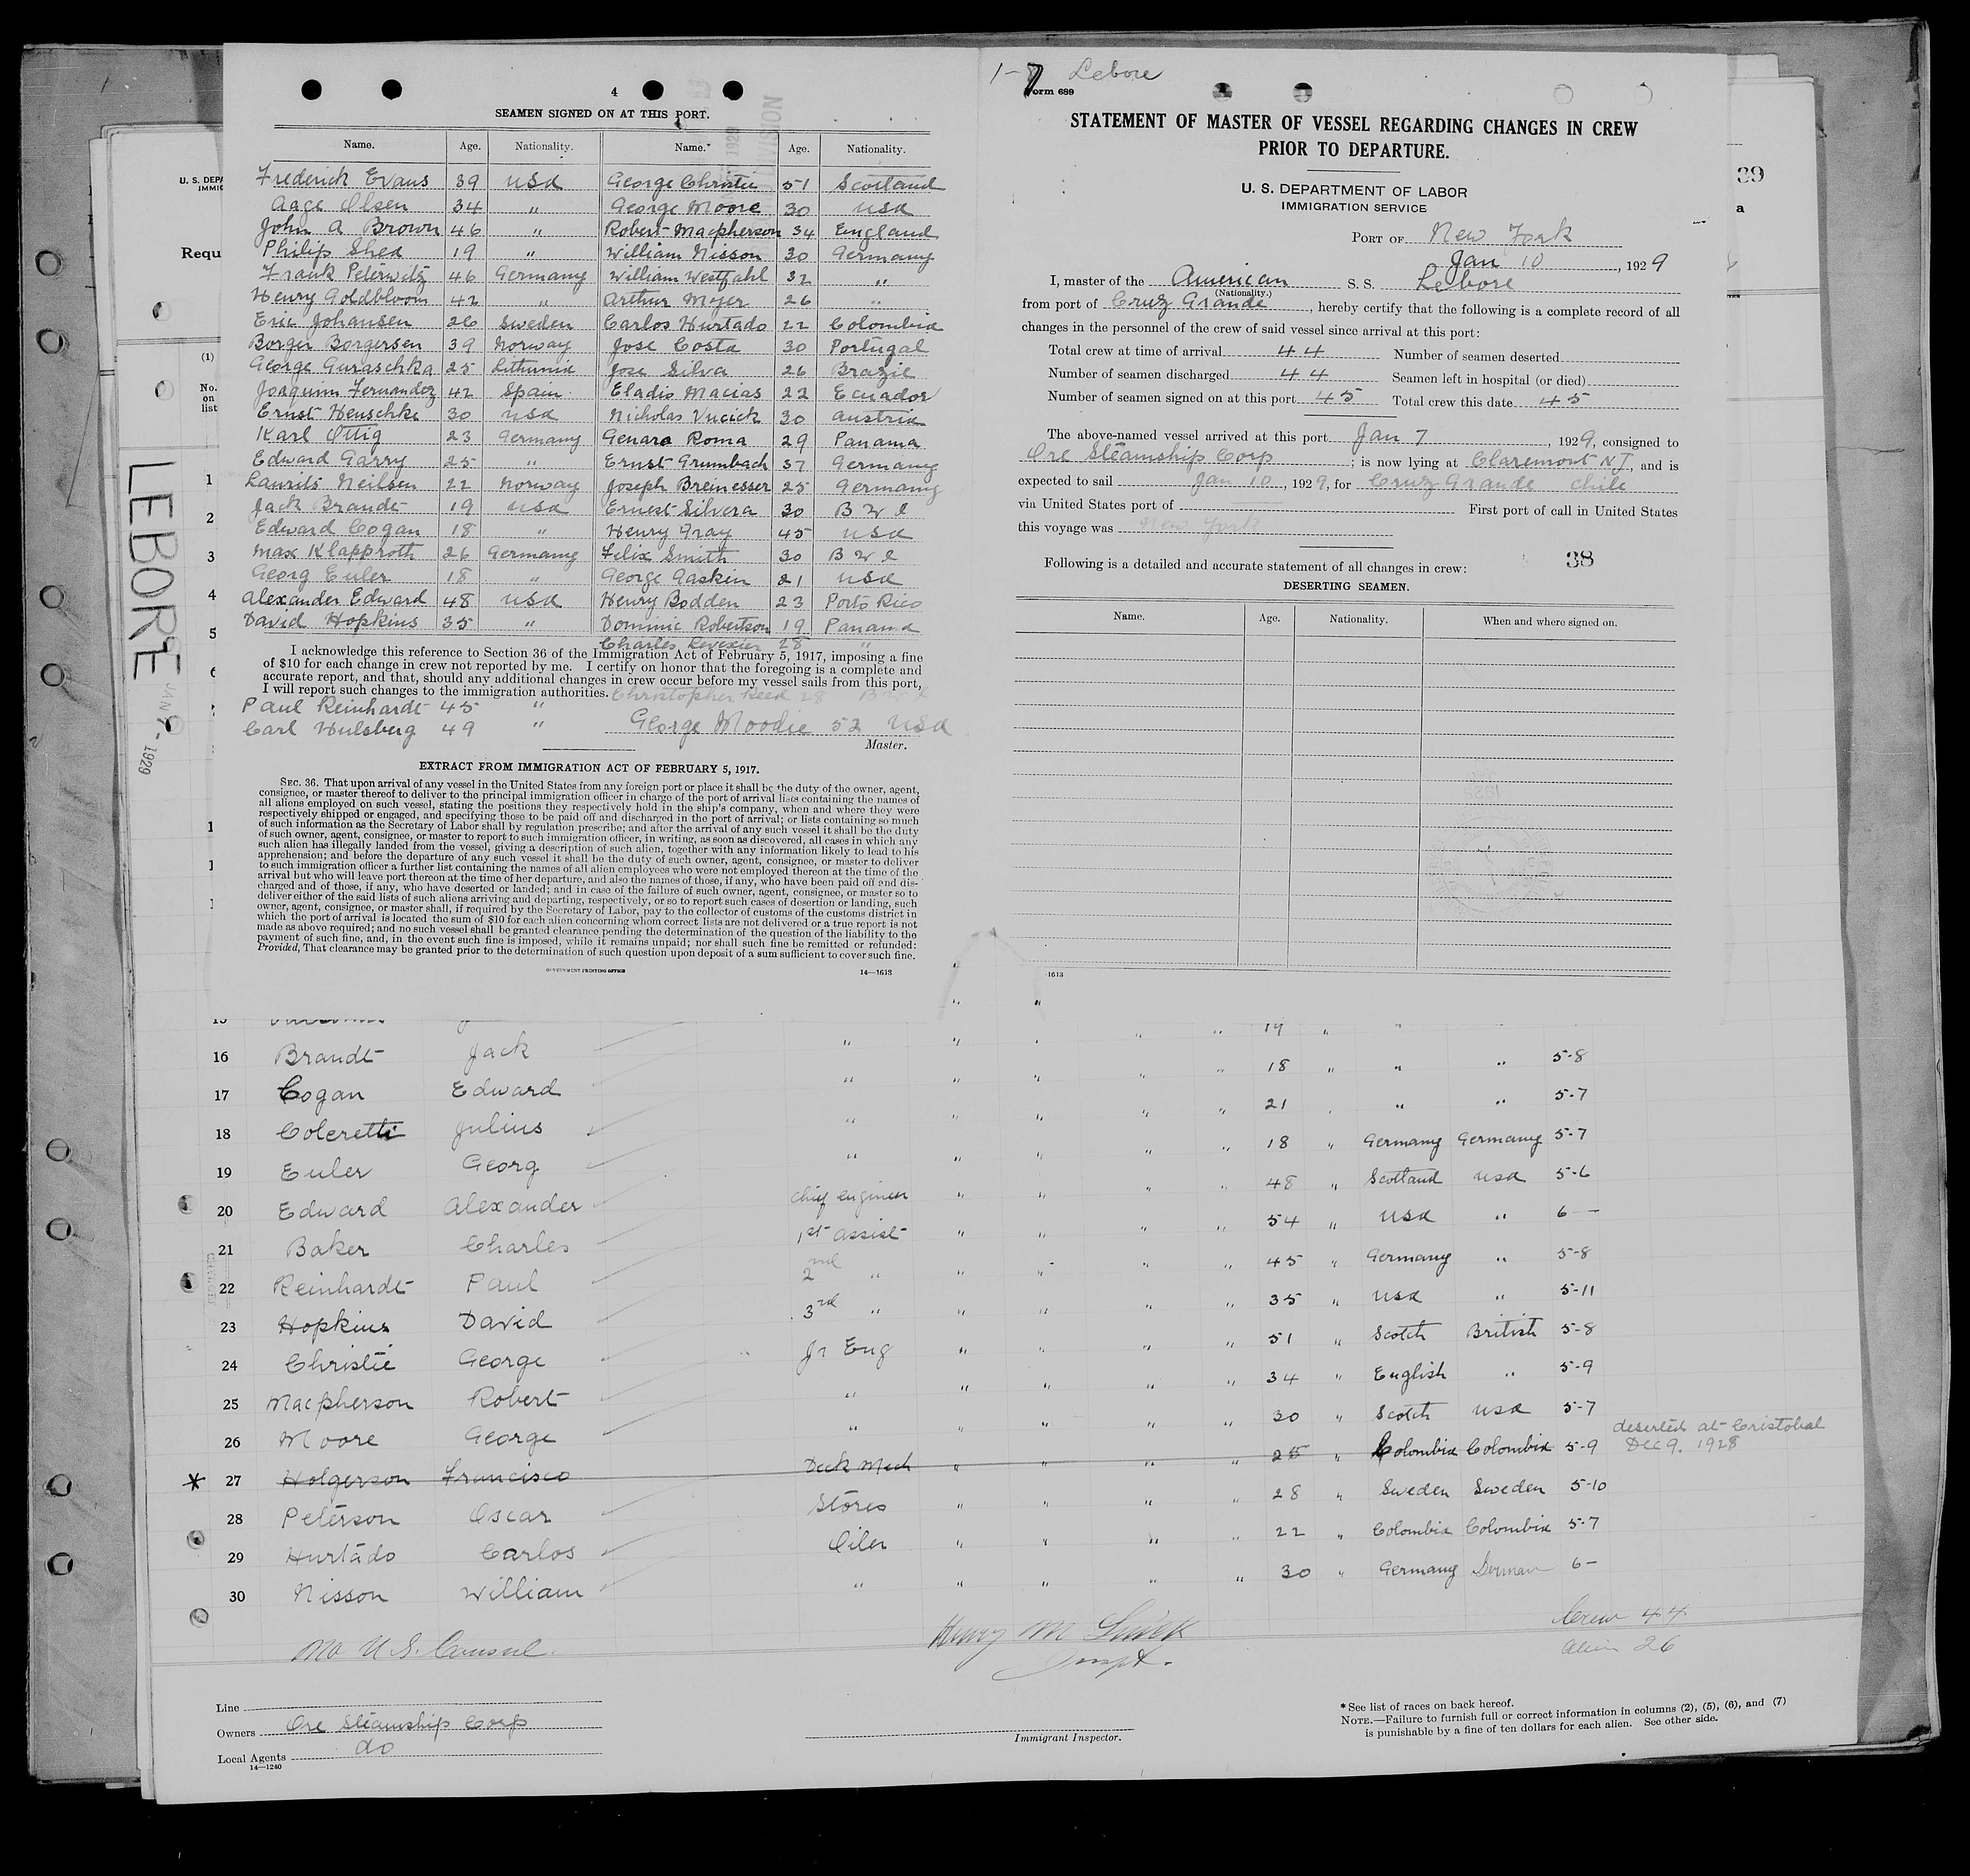 4
SEAMEN SIGNED ON AT THIS PORT.
Name. Age. Nationality. Name. Age. Nationality.
Frederick Evans 39 USA George Christie 51 Scotland
Aage Olsen 34 " George Moore 30 USA
John A Brown 46 " Robert Macpherson 34 England
Philip Shea 19 " William Nisson 30 Germany
Frank Peterwitz 46 Germany William Westfahl 32 "
Henry Goldbloom 42 " Arthur Meyer 26 "
Eric Johansen 26 Sweden Carlos Hurtado 22 Colombia
Borger Borgersen 39 Norway Jose Costa 30 Portugal
George Guraschka 25 Lithunia Jose Silva 26 Brazil
Joaquim Fernandez 42 Spain Eladio Macias 22 Ecuador
Ernst Henschke 30 USA Nicholas Vucich 30 Austria
Karl Ottig 23 Germany Genara Roma 29 Panama
Edward Garry 25 " Ernst Grumbach 37 Germany
Laurits Neilsen 22 Norway Joseph Breinesser 25 Germany
Jack Brandt 19 USA Ernest Silvera 30 B W I
Edward Cogan 18 " Henry Gray 45 USA
Max Klapproth 26 Germany Felix Smith 30 B W I
Georg Euler 18 " George Gaskin 21 USA
Alexander Edward 48 USA Henry Bodden 23 Porto Rico
David Hopkins 35 " Dominic Robertson 19 Panama
Charles 28 "
I acknowledge this reference to Section 36 of the Immigration Act of February 5, 1917, imposing a fine
of $10 for each change in crew not reported by me. I certify on honor that the foregoing is a complete and
accurate report, and that, should any additional changes in crew occur before my vessel sails from this port,
I will report such changes to the immigration authorities. Christopher Reed 28
Paul Reinhardt 45 "
Carl Hulsberg 49 " George Moodie 52 USA
Master.
EXTRACT FROM IMMIGRATION ACT OF FEBRUARY 5, 1917.
SEC. 36. That upon arrival of any vessel in the United States from any foreign port or place it shall be the duty of the owner, agent,
consignee, or master thereof to deliver to the principal immigration officer in charge of the port of arrival lists containing the names of
all aliens employed on such vessel, stating the positions they respectively hold in the ship's company, when and where they were
respectively shipped or engaged, and specifying those to be paid off and discharged in the port of arrival; or lists containing so much
of such information as the Secretary of Labor shall by regulation prescribe; and after the arrival of any such vessel it shall be the duty
of such owner, agent, consignee, or master to report to such immigration officer, in writing, as soon as discovered, all cases in which any
such alien has illegally landed from the vessel, giving a description of such alien, together with any information likely to lead to his
apprehension; and before the departure of any such vessel it shall be the duty of such owner, agent, consignee, or master to deliver
to such immigration officer a further list containing the names of all alien employees who were not employed thereon at the time of the
arrival but who will leave port thereon at the time of her departure, and also the names of those, if any, who have been paid off and dis-
charged and of those, if any, who have deserted or landed; and in case of the failure of such owner, agent, consignee, or master so to
deliver either of the said lists of such aliens arriving and departing, respectively, or so to report such cases of desertion or landing, such
owner, agent, consignee, or master shall, if required by the Secretary of Labor, pay to the collector of customs of the customs district in
which the port of arrival is located the sum of $10 for each alien concerning whom correct lists are not delivered or a true report is not
made as above required; and no such vessel shall be granted clearance pending the determination of the question of the liability to the
payment of such fine, and, in the event such fine is imposed, while it remains unpaid; nor shall such fine be remitted or refunded:
Provided, That clearance may be granted prior to the determination of such question upon deposit of a sum sufficient to cover such fine.
GOVERNMENT PRINTING OFFICE 14—1613
1-7 Lebore
Form 689
STATEMENT OF MASTER OF VESSEL REGARDING CHANGES IN CREW
PRIOR TO DEPARTURE.
U. S. DEPARTMENT OF LABOR
IMMIGRATION SERVICE
PORT OF New York
Jan 10, 1929
I, master of the American S. S. Lebore
(Nationality.)
from port of Cruz Grande, hereby certify that the following is a complete record of all
changes in the personnel of the crew of said vessel since arrival at this port:
Total crew at time of arrival 44 Number of seamen deserted
Number of seamen discharged 44 Seamen left in hospital (or died)
Number of seamen signed on at this port 45 Total crew this date 45
The above-named vessel arrived at this port Jan 7, 1929, consigned to
Ore Steamship Corp; is now lying at Claremont NJ, and is
expected to sail Jan 10, 1929, for Cruz Grande Chile
via United States port of First port of call in United States
this voyage was New York
38
Following is a detailed and accurate statement of all changes in crew:
DESERTING SEAMEN.
Name. Age. Nationality. When and where signed on.
1613
39
a
U. S. DEPA
IMMIG
Requ
(1)
No.
on
list
1
2
3
4
5
6
LEBORE
JAN 7 - 1929
15 19 " "
16 Brandt Jack " " " " " 18 " " " 5-8
17 Cogan Edward " " " " " 21 " " " 5-7
18 Coleretti Julius " " " " " 18 " Germany Germany 5-7
19 Euler Georg " " " " " 48 " Scotland USA 5-6
20 Edward Alexander chief engineer " " " " 54 " USA " 6 —
21 Baker Charles 1st assist " " " " 45 " Germany " 5-8
22 Reinhardt Paul 2nd " " " " " 35 " USA " 5-11
23 Hopkins David 3rd " " " " " 51 " Scotch British 5-8
24 Christie George Jr Eng " " " " 34 " English " 5-9
25 Macpherson Robert " " " " " 30 " Scotch USA 5-7
26 Moore George " " " " " 25 " Colombia Colombia 5-9 deserted at Cristobal Dec 9. 1928
* 27 Holgerson Francisco Deck Mech " " " " 28 " Sweden Sweden 5-10
28 Peterson Oscar Stores " " " " 22 " Colombia Colombia 5-7
29 Hurtado Carlos Oiler " " " " 30 " Germany German 6-
30 Nisson William " " " " "
Crew 44
No U.S. Consul. Henry M
Alien 26
Inspt.
Line
Owners Ore Steamship Corp
Local Agents do
14—1240
Immigrant Inspector.
* See list of races on back hereof.
NOTE.—Failure to furnish full or correct information in columns (2), (5), (6), and (7)
is punishable by a fine of ten dollars for each alien. See other side.